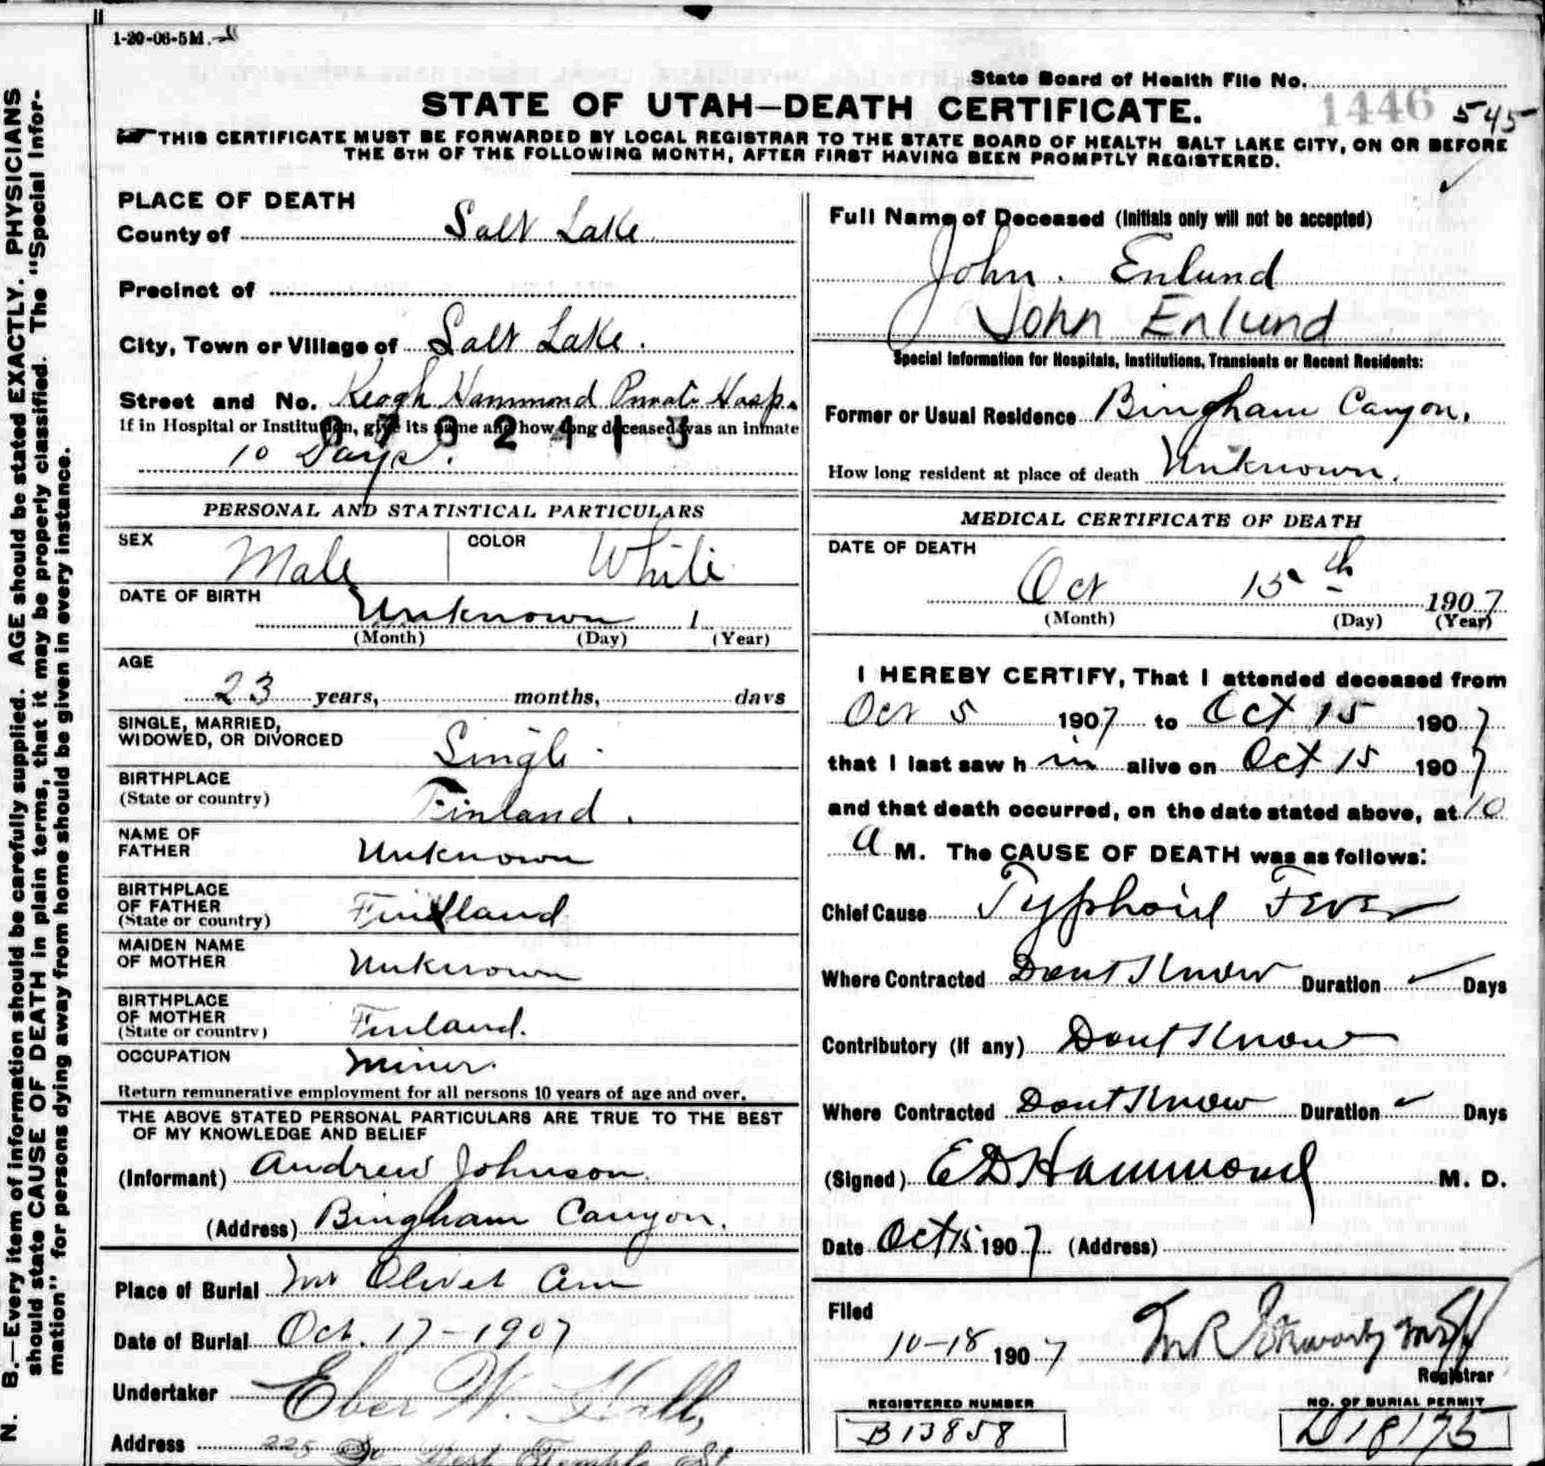 1-20-06-5M.
State Board of Health File No.
1446 545
STATE OF UTAH—DEATH CERTIFICATE.
THIS CERTIFICATE MUST BE FORWARDED BY LOCAL REGISTRAR TO THE STATE BOARD OF HEALTH SALT LAKE CITY, ON OR BEFORE
THE 5TH OF THE FOLLOWING MONTH, AFTER FIRST HAVING BEEN PROMPTLY REGISTERED.
N. B.—Every item of information should be carefully supplied. AGE should be stated EXACTLY. PHYSICIANS
should state CAUSE OF DEATH in plain terms, that it may be properly classified. The "Special Infor-
mation" for persons dying away from home should be given in every instance.
PLACE OF DEATH
County of Salt Lake
Precinct of
City, Town or Village of Salt Lake.
Street and No. Keogh Hammond Private Hosp.
If in Hospital or Institution, give its name and how long deceased was an inmate
10 Days.
PERSONAL AND STATISTICAL PARTICULARS
SEX Male COLOR White
DATE OF BIRTH
Unknown 1
(Month) (Day) (Year)
AGE
23 years, months, days
SINGLE, MARRIED,
WIDOWED, OR DIVORCED Single
BIRTHPLACE
(State or country) Finland.
NAME OF
FATHER Unknown
BIRTHPLACE
OF FATHER
(State or country) Finland
MAIDEN NAME
OF MOTHER Unknown
BIRTHPLACE
OF MOTHER
(State or country) Finland.
OCCUPATION Miner.
Return remunerative employment for all persons 10 years of age and over.
THE ABOVE STATED PERSONAL PARTICULARS ARE TRUE TO THE BEST
OF MY KNOWLEDGE AND BELIEF
(Informant) Andrew Johnson.
(Address) Bingham Canyon.
Place of Burial Mt Olivet Cem
Date of Burial Oct. 17-1907
Undertaker Eber W. Hall,
Address 225 So West Temple St
Full Name of Deceased (Initials only will not be accepted)
John. Enlund
John Enlund
Special Information for Hospitals, Institutions, Transients or Recent Residents:
Former or Usual Residence Bingham Canyon.
How long resident at place of death Unknown.
MEDICAL CERTIFICATE OF DEATH
DATE OF DEATH
Oct 15th 1907
(Month) (Day) (Year)
I HEREBY CERTIFY, That I attended deceased from
Oct 5 1907 to Oct 15 1907
that I last saw h im alive on Oct 15 1907
and that death occurred, on the date stated above, at 10
a M. The CAUSE OF DEATH was as follows:
Chief Cause Typhoid Fever
Where Contracted Dont Know Duration Days
Contributory (if any) Dont Know
Where Contracted Dont Know Duration Days
(Signed) E D Hammond M. D.
Date Oct 15 1907 (Address)
Filed
10-18 1907
Registrar
REGISTERED NUMBER
B13858
NO. OF BURIAL PERMIT
D18175